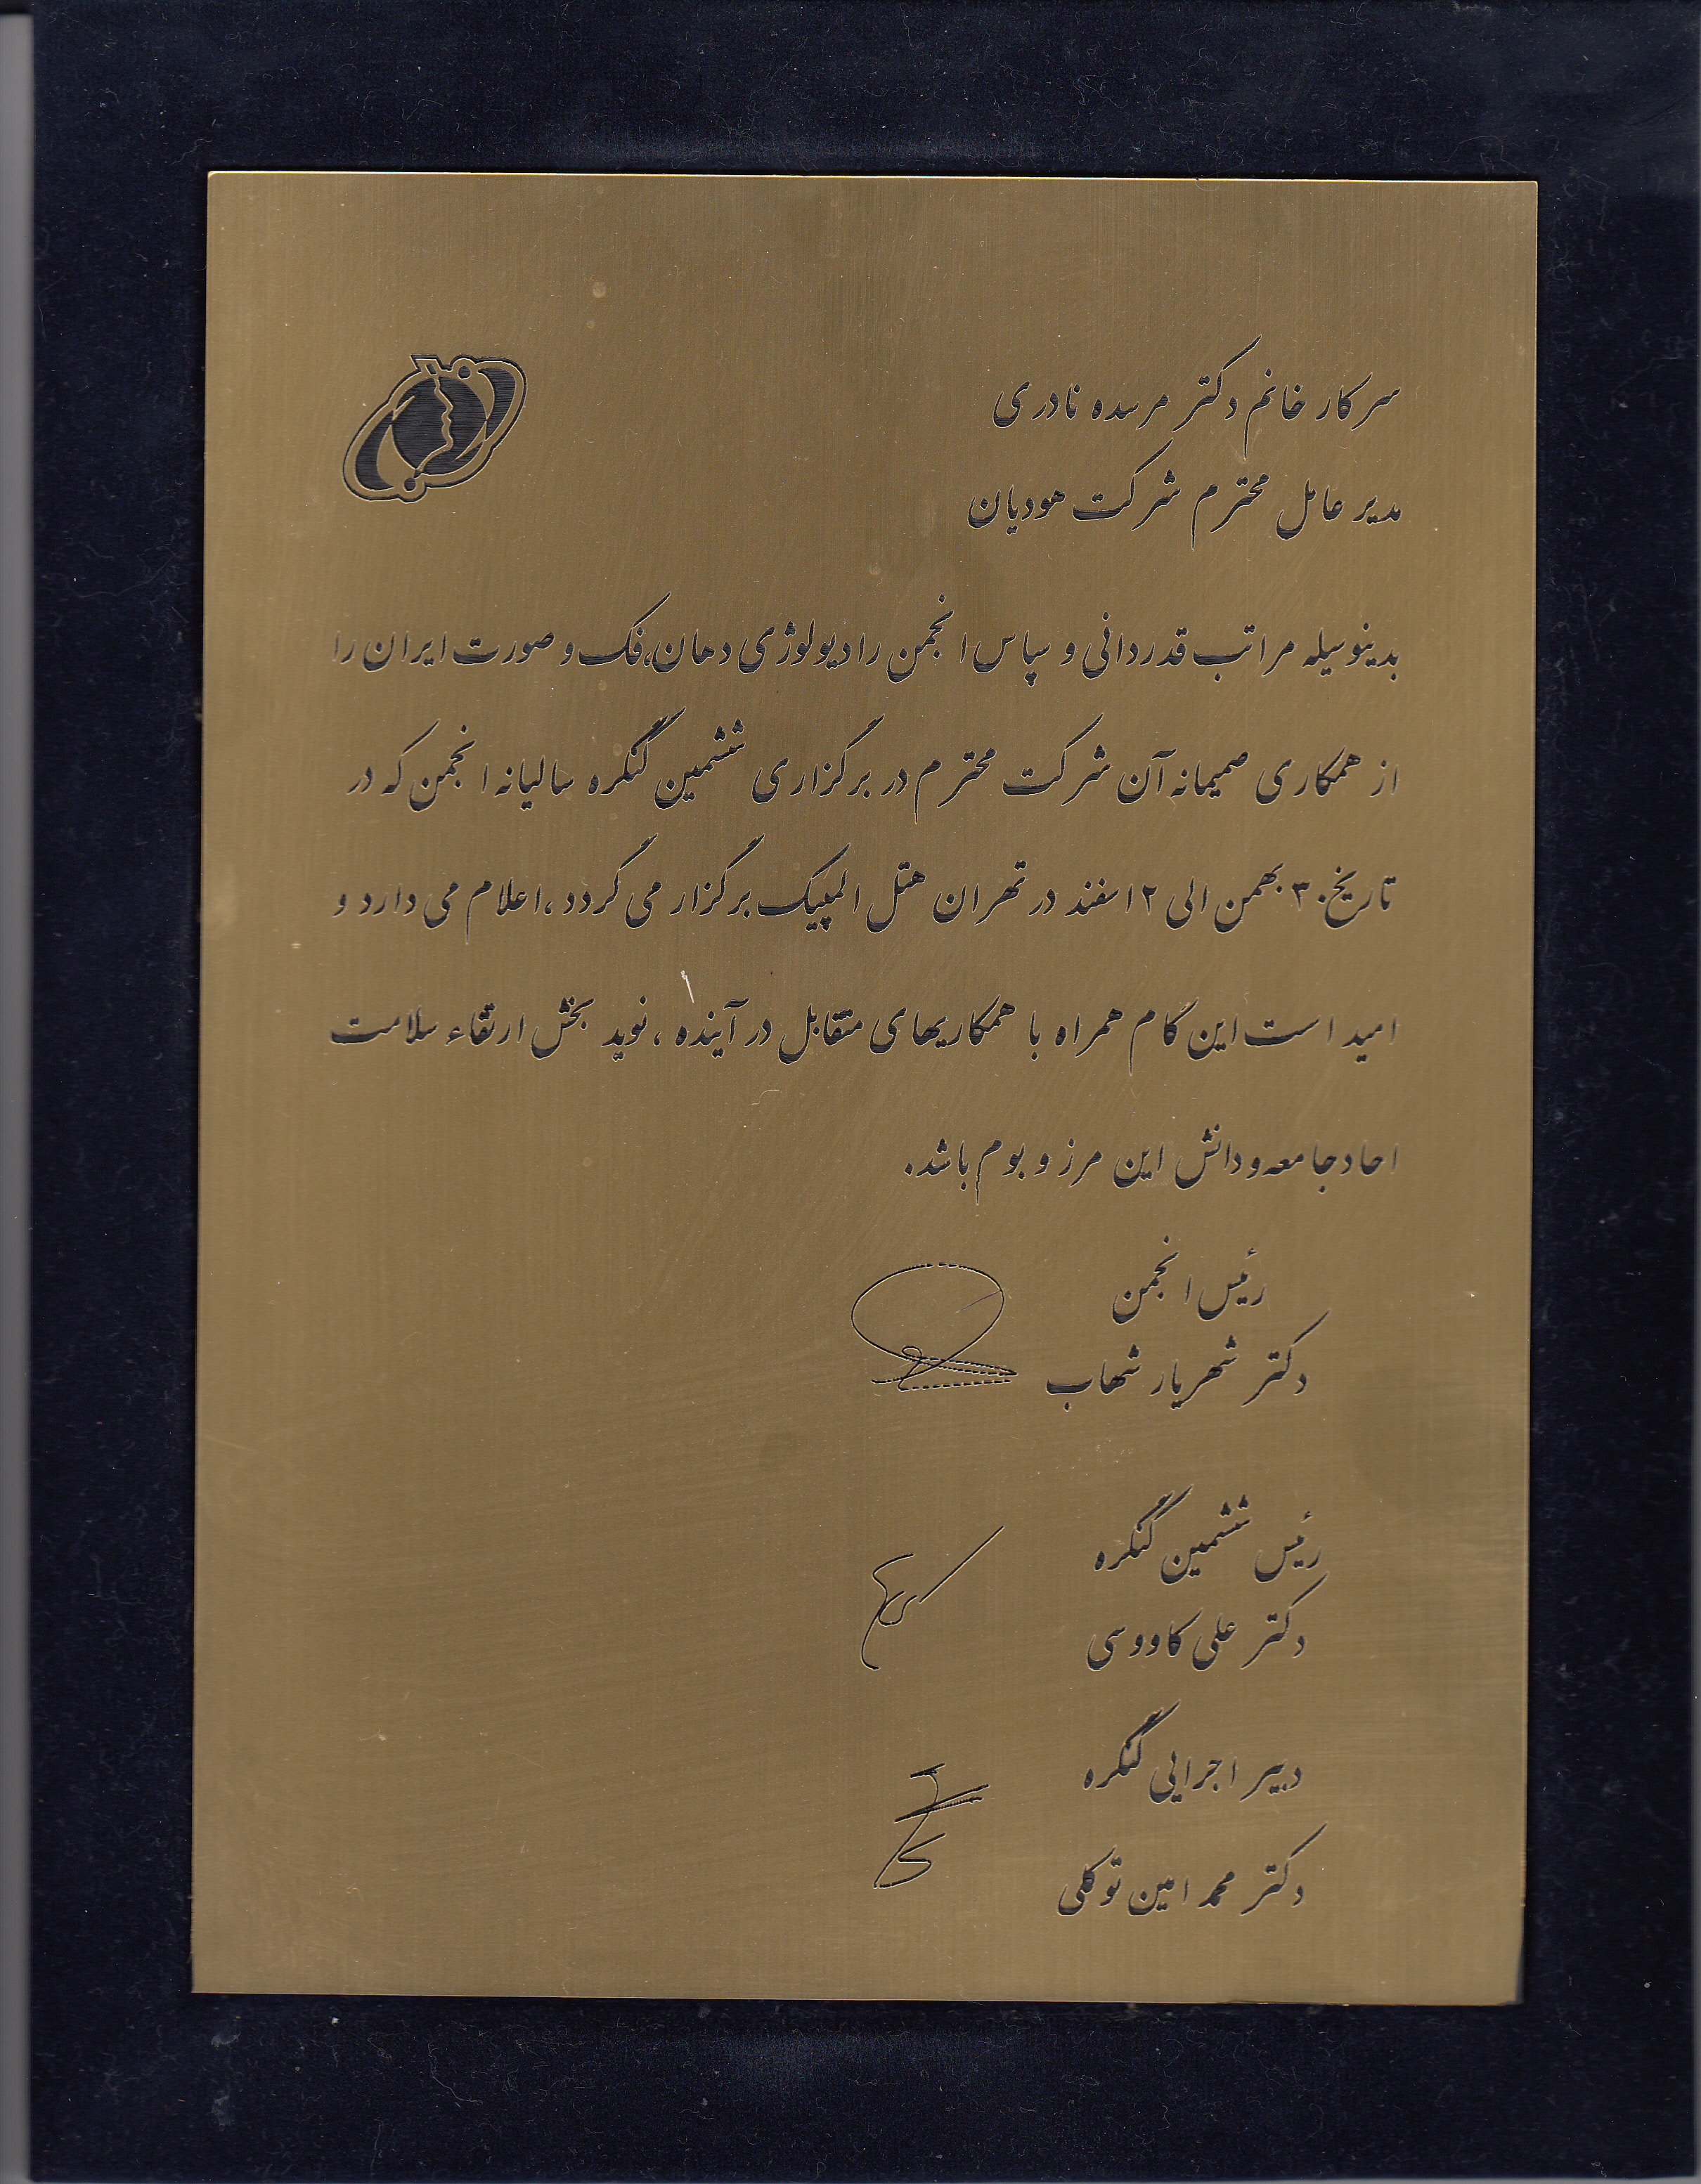 سرکار خانم دکتر مرسده نادری
مدیر عامل محترم شرکت هودیان
بدینوسیله مراتب قدردانی و سپاس انجمن رادیولوژی دهان،فک و صورت ایران را
از همکاری صمیمانه آن شرکت محترم در برگزاری ششمین کنگره سالیانه انجمن که در
تاریخ ۳۰ بهمن الی ۲ اسفند در تهران هتل المپیک برگزار می گردد ،اعلام می دارد و
امید است این گام همراه با همکاریهای متقابل در آینده ، نوید بخش ارتقاء سلامت
احاد جامعه و دانش این مرز و بوم باشد.
رئیس انجمن
دکتر شهریار شهاب
رئیس ششمین کنگره
دکتر علی کاووسی
دبیر اجرایی کنگره
دکتر محمد امین توکلی